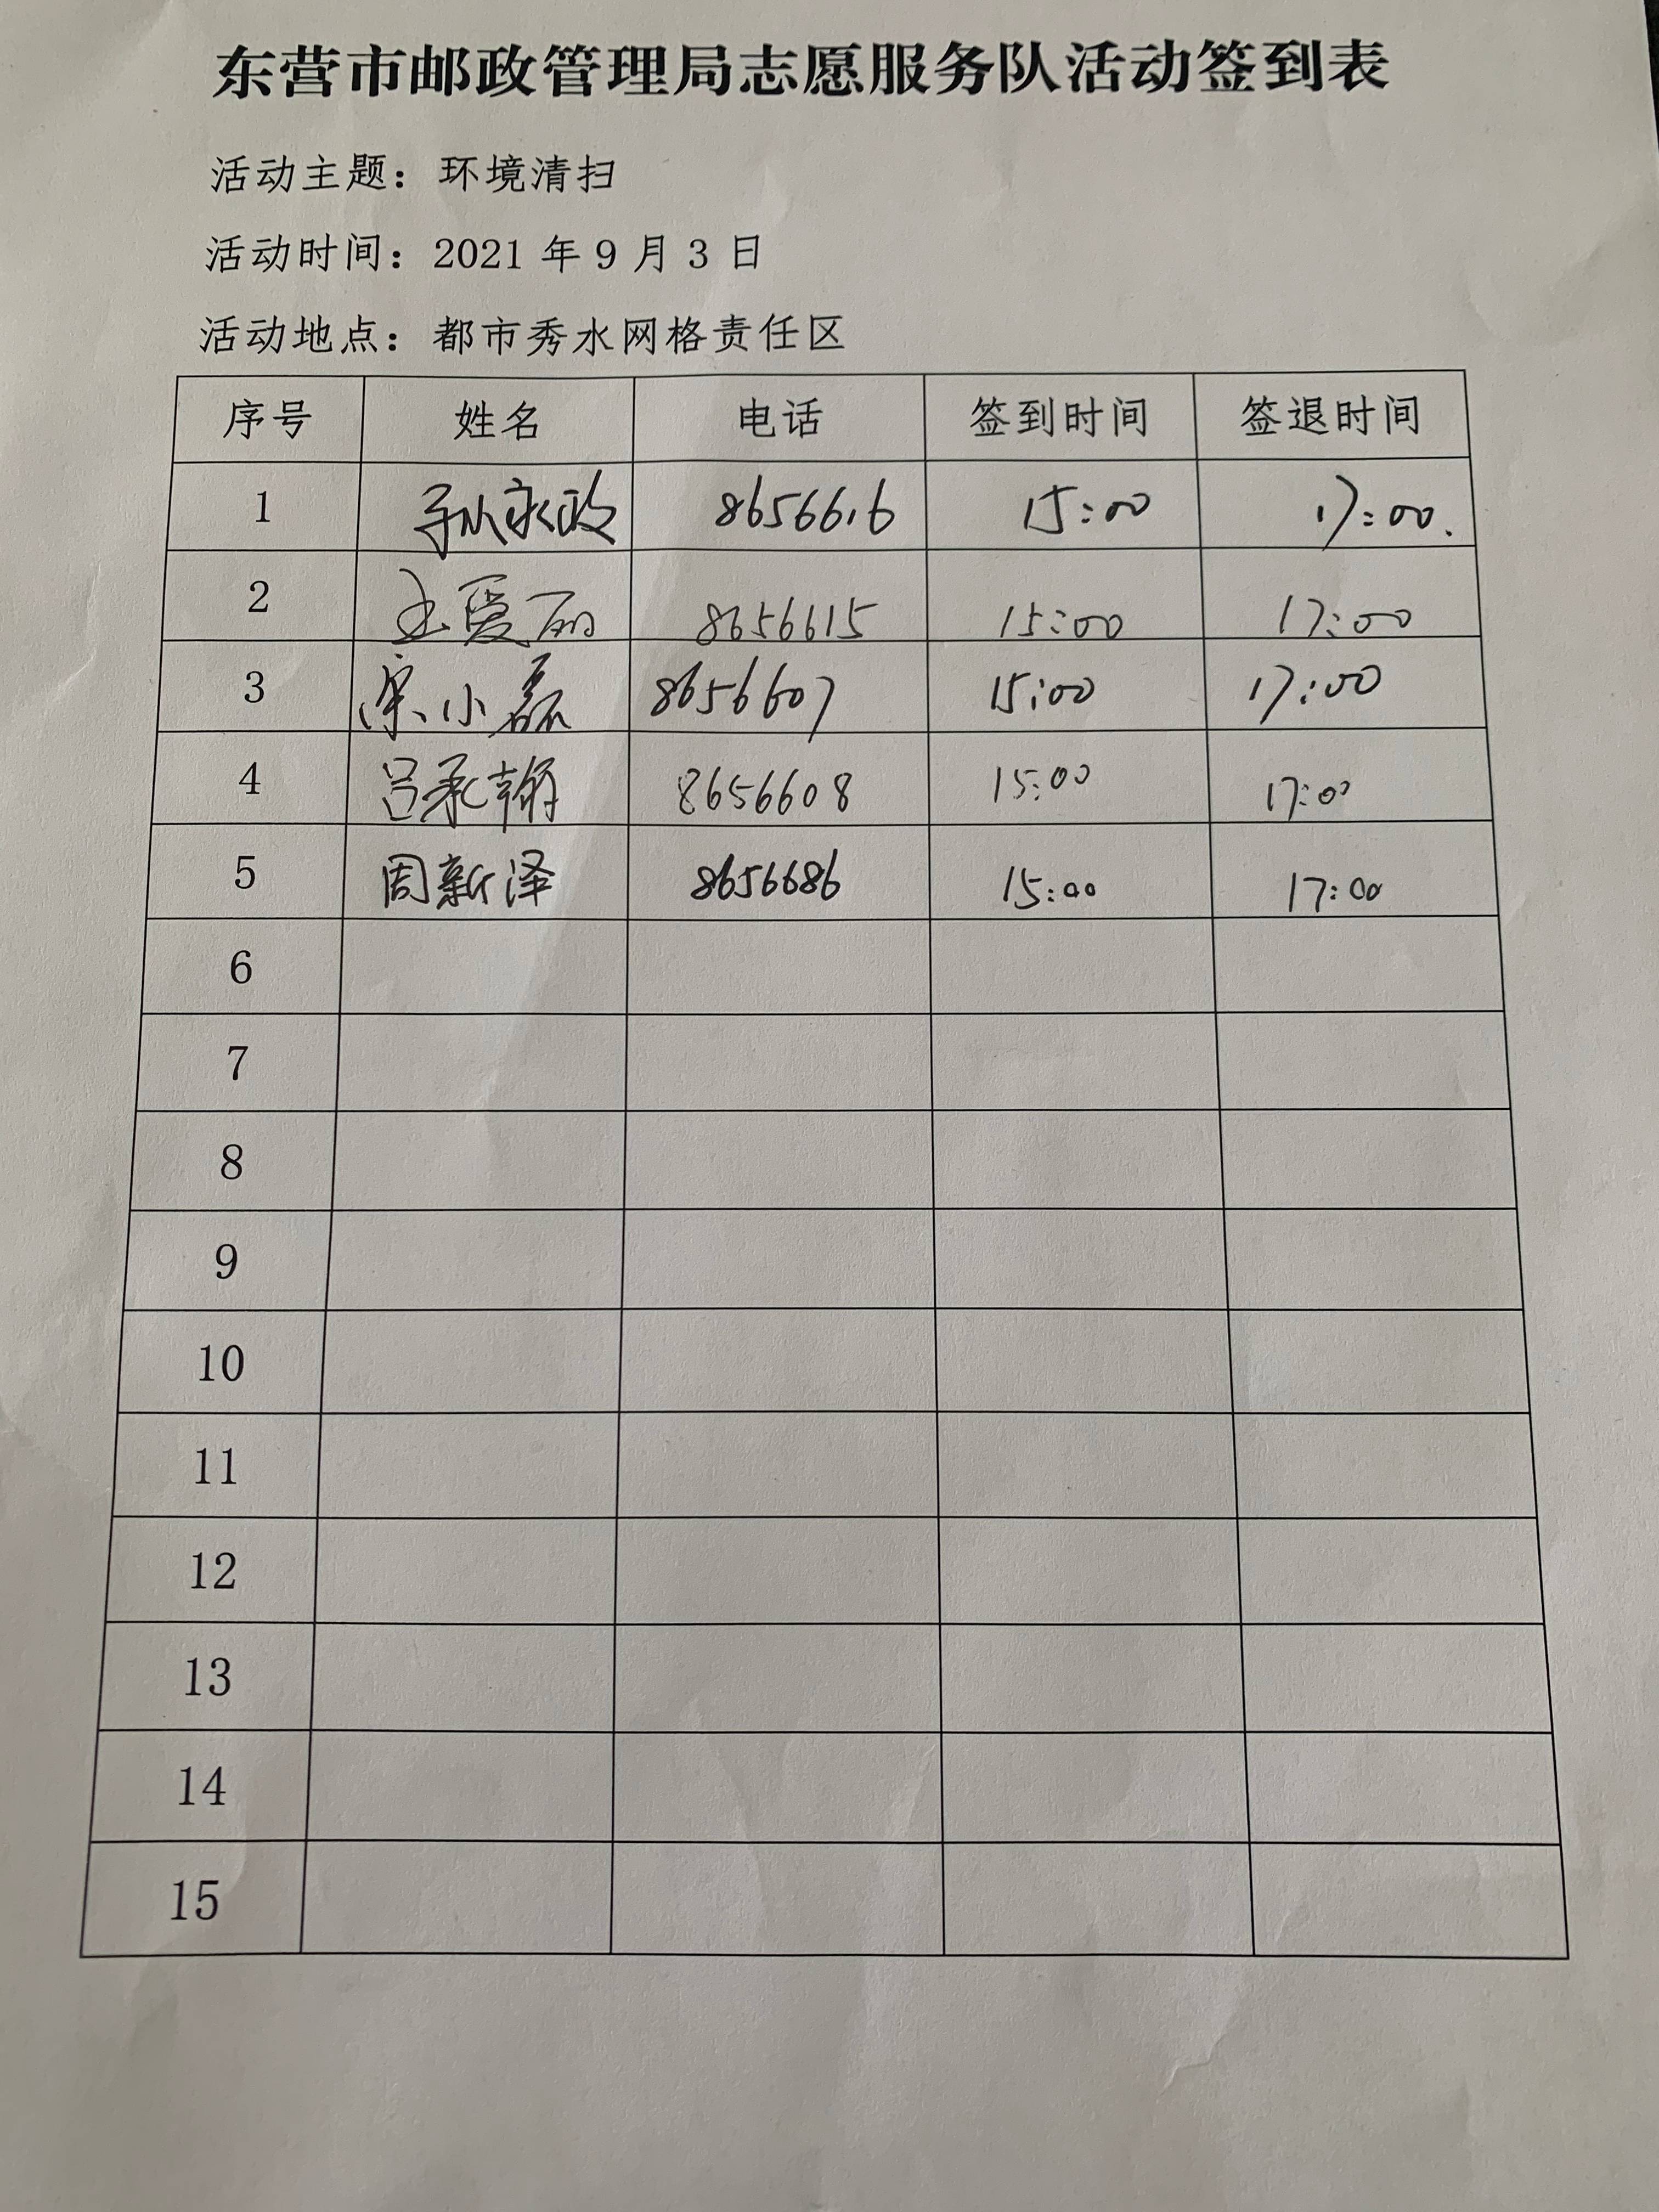 东营市邮政管理局志愿服务队活动签到表
活动主题：环境清扫
活动时间：2021 年 9 月 3 日
活动地点：都市秀水网格责任区
序号 姓名 电话 签到时间 签退时间
1 孙永政 8656616 15:00 17:00.
2 王爱丽 8656615 15:00 17:00
3 宋小磊 8656607 15:00 17:00
4 吕承翰 8656608 15:00 17:00
5 周新泽 8656686 15:00 17:00
6
7
8
9
10
11
12
13
14
15